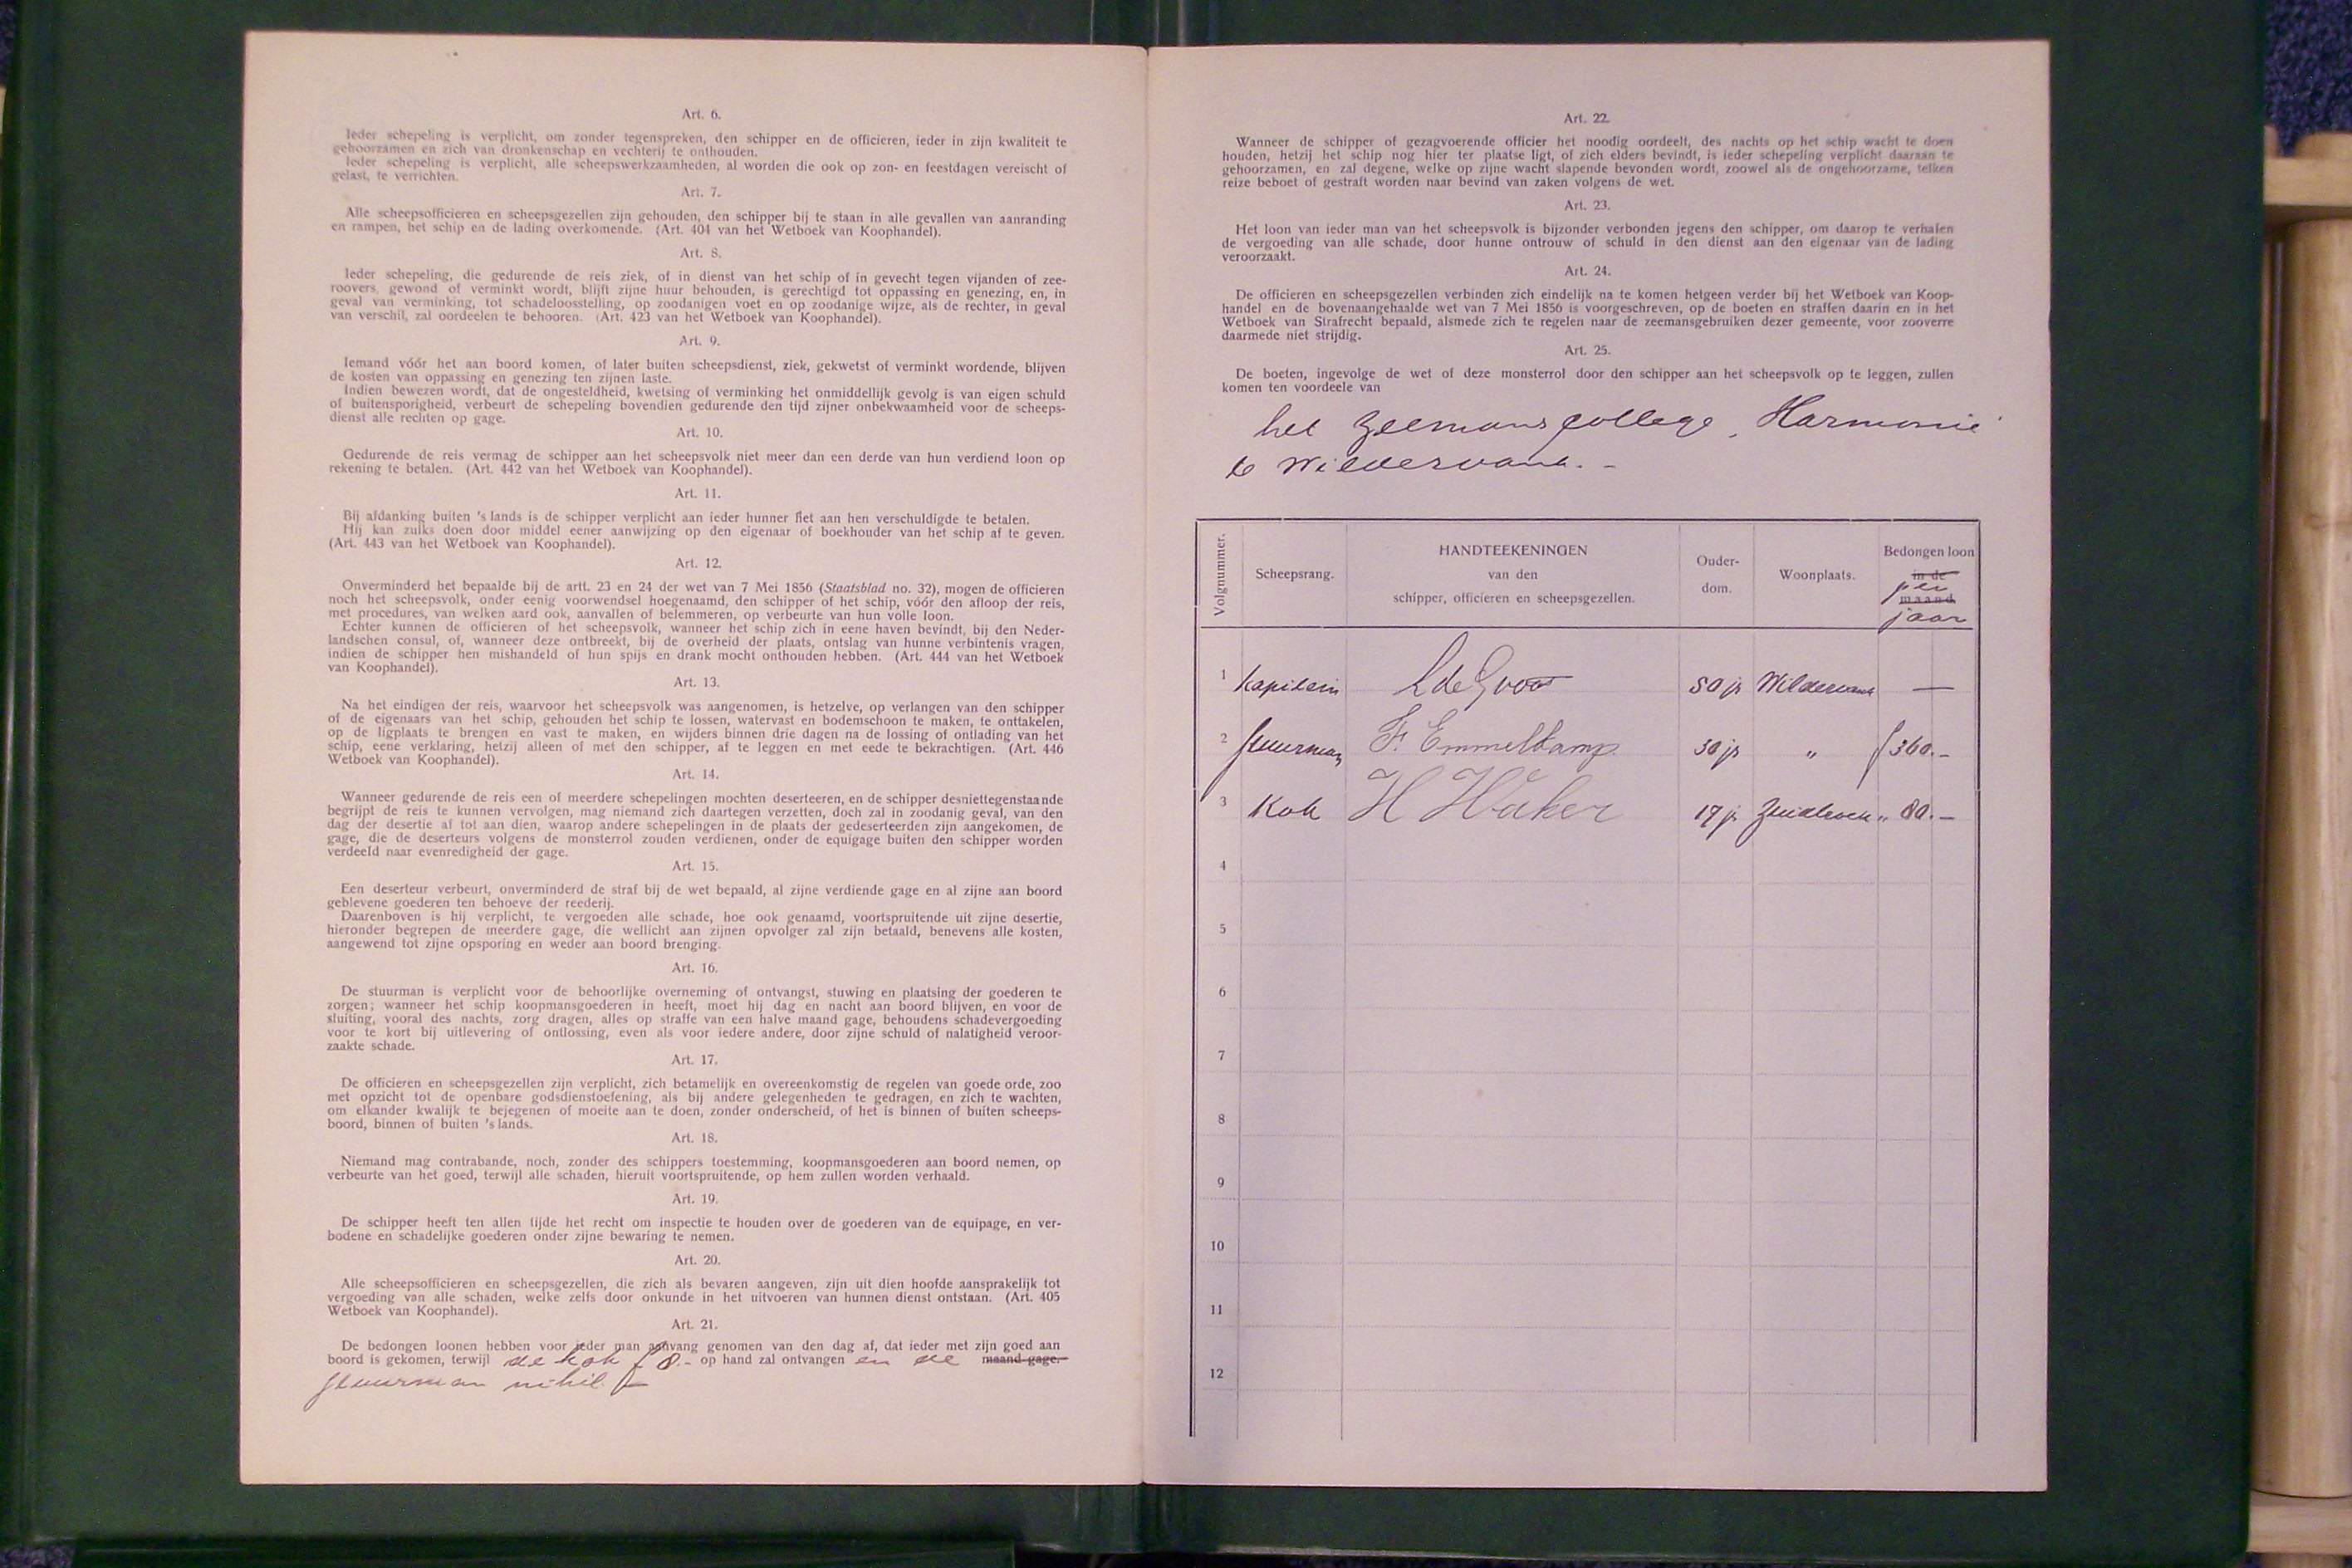 Art. 6.
Ieder schepeling is verplicht, om zonder tegenspreken, den schipper en de officieren, ieder in zijn kwaliteit te
gehoorzamen en zich van dronkenschap en vechterij te onthouden.
Ieder schepeling is verplicht, alle scheepswerkzaamheden, al worden die ook op zon- en feestdagen vereischt of
gelast, te verrichten.
Art. 7.
Alle scheepsofficieren en scheepsgezellen zijn gehouden, den schipper bij te staan in alle gevallen van aanranding
en rampen, het schip en de lading overkomende. (Art. 404 van het Wetboek van Koophandel).
Art. 8.
Ieder schepeling, die gedurende de reis ziek, of in dienst van het schip of in gevecht tegen vijanden of zee-
roovers, gewond of verminkt wordt, blijft zijne huur behouden, is gerechtigd tot oppassing en genezing, en, in
geval van verminking, tot schadeloosstelling, op zoodanigen voet en op zoodanige wijze, als de rechter, in geval
van verschil, zal oordeelen te behooren. (Art. 423 van het Wetboek van Koophandel).
Art. 9.
Iemand vóór het aan boord komen, of later buiten scheepsdienst, ziek, gekwetst of verminkt wordende, blijven
de kosten van oppassing en genezing ten zijnen laste.
Indien bewezen wordt, dat de ongesteldheid, kwetsing of verminking het onmiddellijk gevolg is van eigen schuld
of buitensporigheid, verbeurt de schepeling bovendien gedurende den tijd zijner onbekwaamheid voor de scheeps-
dienst alle rechten op gage.
Art. 10.
Gedurende de reis vermag de schipper aan het scheepsvolk niet meer dan een derde van hun verdiend loon op
rekening te betalen. (Art. 442 van het Wetboek van Koophandel).
Art. 11.
Bij afdanking buiten 's lands is de schipper verplicht aan ieder hunner het aan hen verschuldigde te betalen.
Hij kan zulks doen door middel eener aanwijzing op den eigenaar of boekhouder van het schip af te geven.
(Art. 443 van het Wetboek van Koophandel).
Art. 12.
Onverminderd het bepaalde bij de artt. 23 en 24 der wet van 7 Mei 1856 (Staatsblad no. 32), mogen de officieren
noch het scheepsvolk, onder eenig voorwendsel hoegenaamd, den schipper of het schip, vóór den afloop der reis,
met procedures, van welken aard ook, aanvallen of belemmeren, op verbeurte van hun volle loon.
Echter kunnen de officieren of het scheepsvolk, wanneer het schip zich in eene haven bevindt, bij den Neder-
landschen consul, of, wanneer deze ontbreekt, bij de overheid der plaats, ontslag van hunne verbintenis vragen,
indien de schipper hen mishandeld of hun spijs en drank mocht onthouden hebben. (Art. 444 van het Wetboek
van Koophandel).
Art. 13.
Na het eindigen der reis, waarvoor het scheepsvolk was aangenomen, is hetzelve, op verlangen van den schipper
of de eigenaars van het schip, gehouden het schip te lossen, watervast en bodemschoon te maken, te onttakelen,
op de ligplaats te brengen en vast te maken, en wijders binnen drie dagen na de lossing of ontlading van het
schip, eene verklaring, hetzij alleen of met den schipper, af te leggen en met eede te bekrachtigen. (Art. 446
Wetboek van Koophandel).
Art. 14.
Wanneer gedurende de reis een of meerdere schepelingen mochten deserteeren, en de schipper desniettegenstaande
begrijpt de reis te kunnen vervolgen, mag niemand zich daartegen verzetten, doch zal in zoodanig geval, van den
dag der desertie af tot aan dien, waarop andere schepelingen in de plaats der gedeserteerden zijn aangekomen, de
gage, die de deserteurs volgens de monsterrol zouden verdienen, onder de equipage buiten den schipper worden
verdeeld naar evenredigheid der gage.
Art. 15.
Een deserteur verbeurt, onverminderd de straf bij de wet bepaald, al zijne verdiende gage en al zijne aan boord
geblevene goederen ten behoeve der reederij.
Daarenboven is hij verplicht, te vergoeden alle schade, hoe ook genaamd, voortspruitende uit zijne desertie,
hieronder begrepen de meerdere gage, die wellicht aan zijnen opvolger zal zijn betaald, benevens alle kosten,
aangewend tot zijne opsporing en weder aan boord brenging.
Art. 16.
De stuurman is verplicht voor de behoorlijke overneming of ontvangst, stuwing en plaatsing der goederen te
zorgen; wanneer het schip koopmansgoederen in heeft, moet hij dag en nacht aan boord blijven, en voor de
sluiting, vooral des nachts, zorg dragen, alles op straffe van een halve maand gage, behoudens schadevergoeding
voor te kort bij uitlevering of ontlossing, even als voor iedere andere, door zijne schuld of nalatigheid veroor-
zaakte schade.
Art. 17.
De officieren en scheepsgezellen zijn verplicht, zich betamelijk en overeenkomstig de regelen van goede orde, zoo
met opzicht tot de openbare godsdienstoefening, als bij andere gelegenheden te gedragen, en zich te wachten,
om elkander kwalijk te bejegenen of moeite aan te doen, zonder onderscheid, of het is binnen of buiten scheeps-
boord, binnen of buiten 's lands.
Art. 18.
Niemand mag contrabande, noch, zonder des schippers toestemming, koopmansgoederen aan boord nemen, op
verbeurte van het goed, terwijl alle schaden, hieruit voortspruitende, op hem zullen worden verhaald.
Art. 19.
De schipper heeft ten allen tijde het recht om inspectie te houden over de goederen van de equipage, en ver-
bodene en schadelijke goederen onder zijne bewaring te nemen.
Art. 20.
Alle scheepsofficieren en scheepsgezellen, die zich als bevaren aangeven, zijn uit dien hoofde aansprakelijk tot
vergoeding van alle schaden, welke zelfs door onkunde in het uitvoeren van hunnen dienst ontstaan. (Art. 405
Wetboek van Koophandel).
Art. 21.
De bedongen loonen hebben voor ieder man aanvang genomen van den dag af, dat ieder met zijn goed aan
boord is gekomen, terwijl de kok f 8.- op hand zal ontvangen en de maand gage.
stuurman nihil.
Art. 22.
Wanneer de schipper of gezagvoerende officier het noodig oordeelt, des nachts op het schip wacht te doen
houden, hetzij het schip nog hier ter plaatse ligt, of zich elders bevindt, is ieder schepeling verplicht daaraan te
gehoorzamen, en zal degene, welke op zijne wacht slapende bevonden wordt, zoowel als de ongehoorzame, telken
reize beboet of gestraft worden naar bevind van zaken volgens de wet.
Art. 23.
Het loon van ieder man van het scheepsvolk is bijzonder verbonden jegens den schipper, om daarop te verhalen
de vergoeding van alle schade, door hunne ontrouw of schuld in den dienst aan den eigenaar van de lading
veroorzaakt.
Art. 24.
De officieren en scheepsgezellen verbinden zich eindelijk na te komen hetgeen verder bij het Wetboek van Koop-
handel en de bovenaangehaalde wet van 7 Mei 1856 is voorgeschreven, op de boeten en straffen daarin en in het
Wetboek van Strafrecht bepaald, alsmede zich te regelen naar de zeemansgebruiken dezer gemeente, voor zooverre
daarmede niet strijdig.
Art. 25.
De boeten, ingevolge de wet of deze monsterrol door den schipper aan het scheepsvolk op te leggen, zullen
komen ten voordeele van
het Zeemanscollege, Harmonie
te Wildervank. -
Volgnummer.
Scheepsrang.
HANDTEEKENINGEN
van den
schipper, officieren en scheepsgezellen.
Ouder-
dom.
Woonplaats.
Bedongen loon
in de
per
maand
jaar
1 Kapitein L de Groot 50 jr Wildervank —
2 Stuurman F. Emmelkamp 30 jr " f 360.-
3 Kok H Haker 17 jr Zuidbroek " 80.-
4
5
6
7
8
9
10
11
12